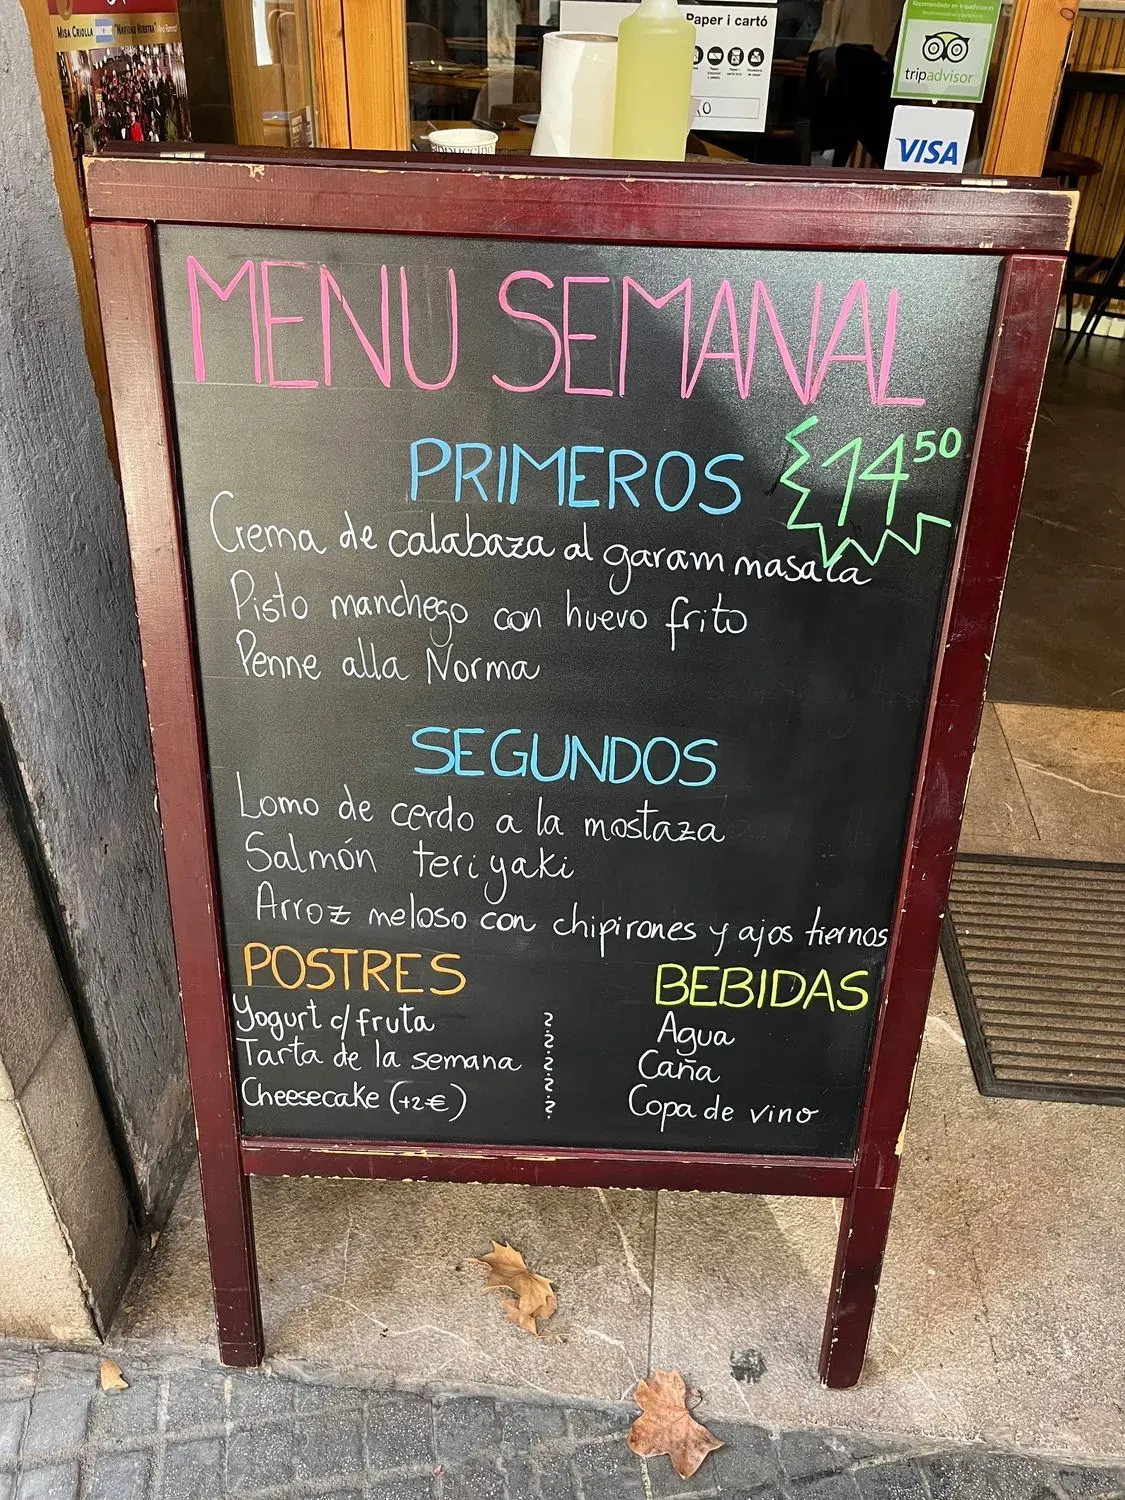 MISA CRIOLLA "NAVIDAD NUESTRA"
Paper i cartó
Recomendado en tripadvisor.es
tripadvisor
VISA
MENU SEMANAL
PRIMEROS
14⁵⁰
Crema de calabaza al garam masala
Pisto manchego con huevo frito
Penne alla Norma
SEGUNDOS
Lomo de cerdo a la mostaza
Salmón teriyaki
Arroz meloso con chipirones y ajos tiernos
POSTRES
Yogurt c/ fruta
Tarta de la semana
Cheesecake (+2€)
BEBIDAS
Agua
Caña
Copa de vino